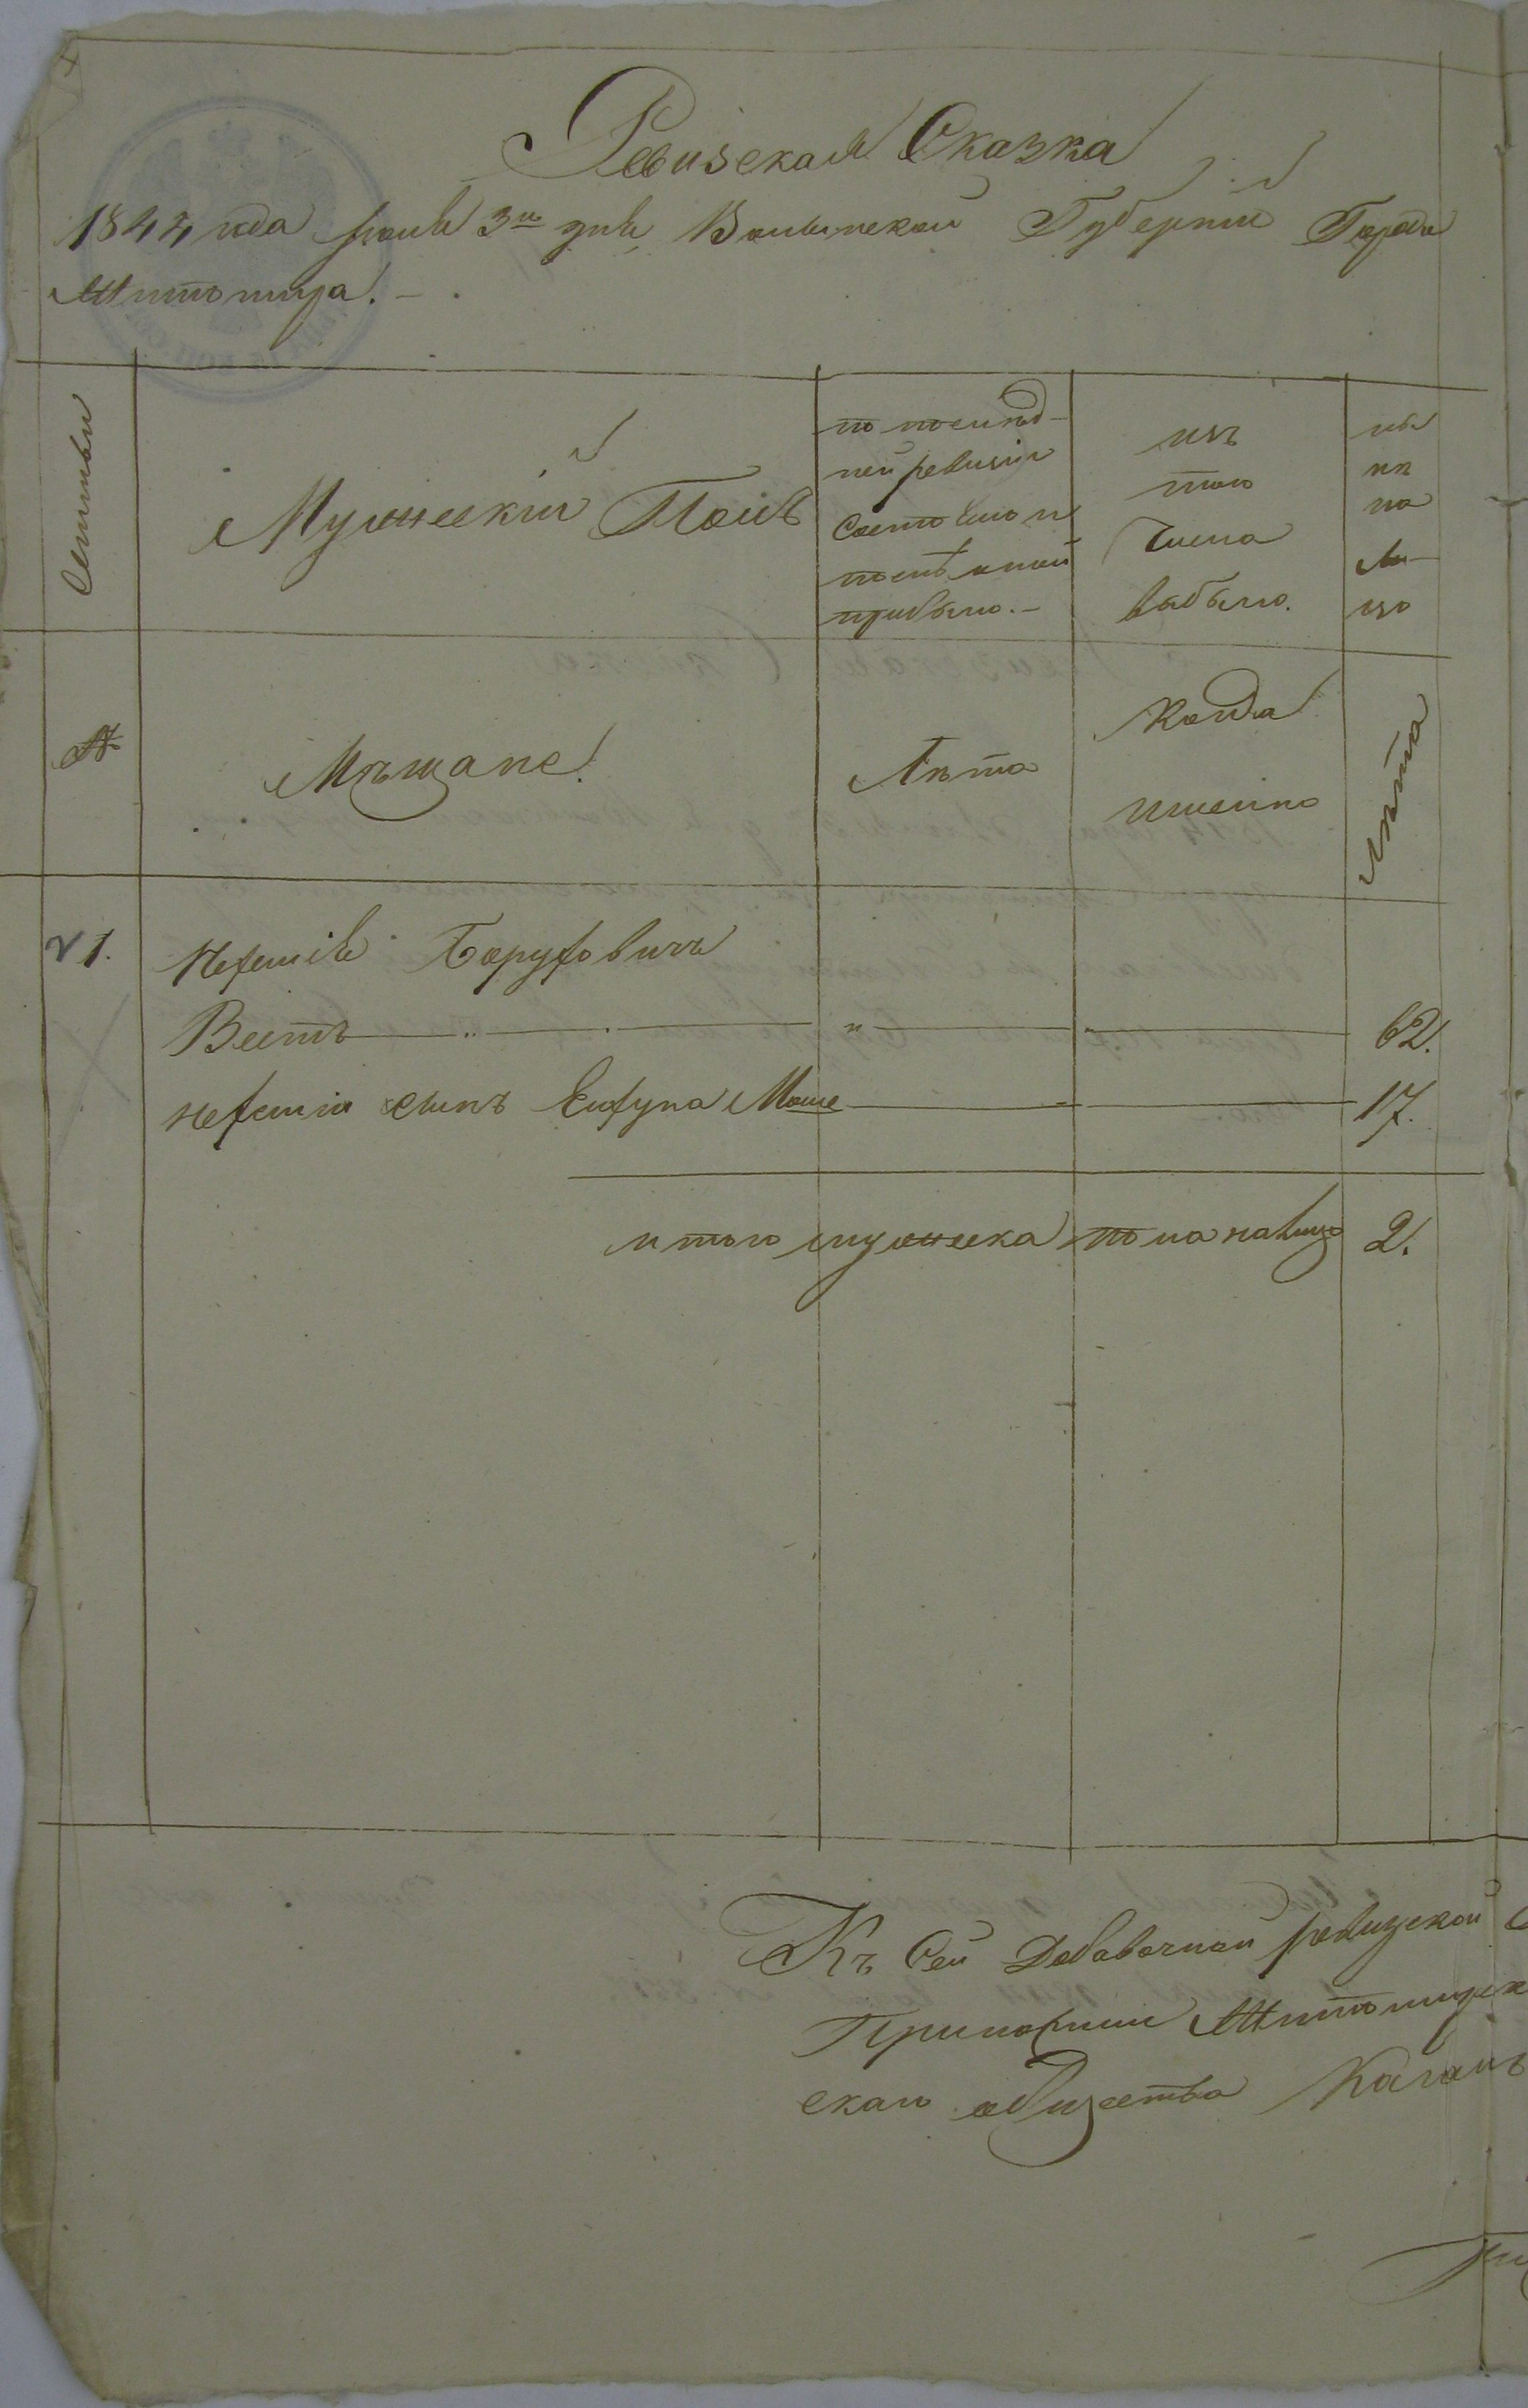 Ревизская Сказка
1844 года июня 3го дня, Волынской Губернии Города
Житомира.
Семьи
Мужескій Полъ
по послѣд-
ней ревизіи
состояло и
послѣ оной
прибыло.
изъ
того
числа
выбыло.
ны
нѣ
на
ли-
цо
№
Мѣщане.
Лѣта
Когда
имянно
Лѣта
1. Нехемія Борухович
Вестъ 62.
Нехеміи сынъ Елхуна Моше 17.
итого мужеска пола налицо 2.
Къ Сей Добавочной ревизской
скаго общества Кагалъ